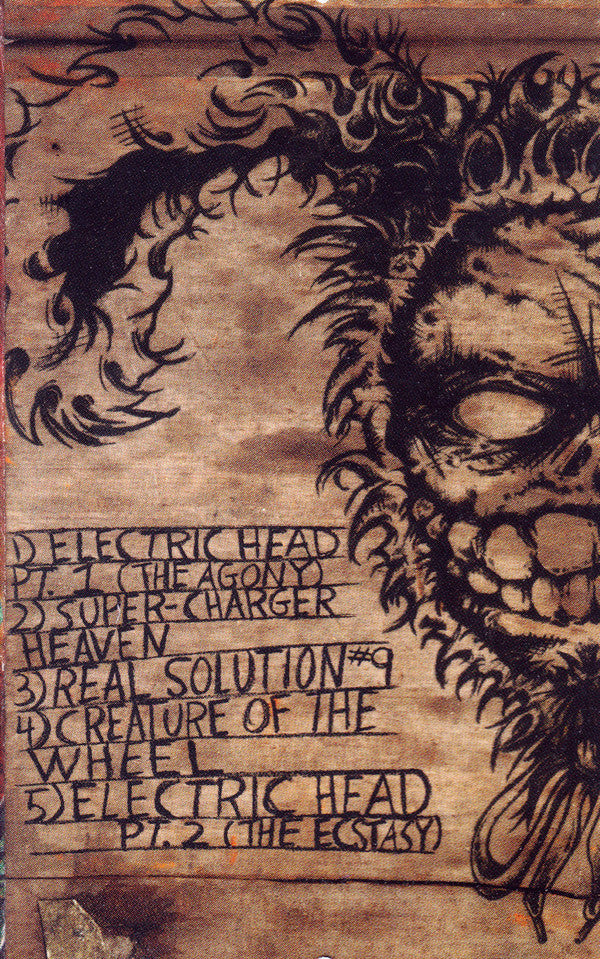 1) ELECTRIC HEAD
PT. 1 (THE AGONY)
2) SUPER-CHARGER
HEAVEN
3) REAL SOLUTION #9
4) CREATURE OF THE
WHEEL
5) ELECTRIC HEAD
PT. 2 (THE ECSTASY)